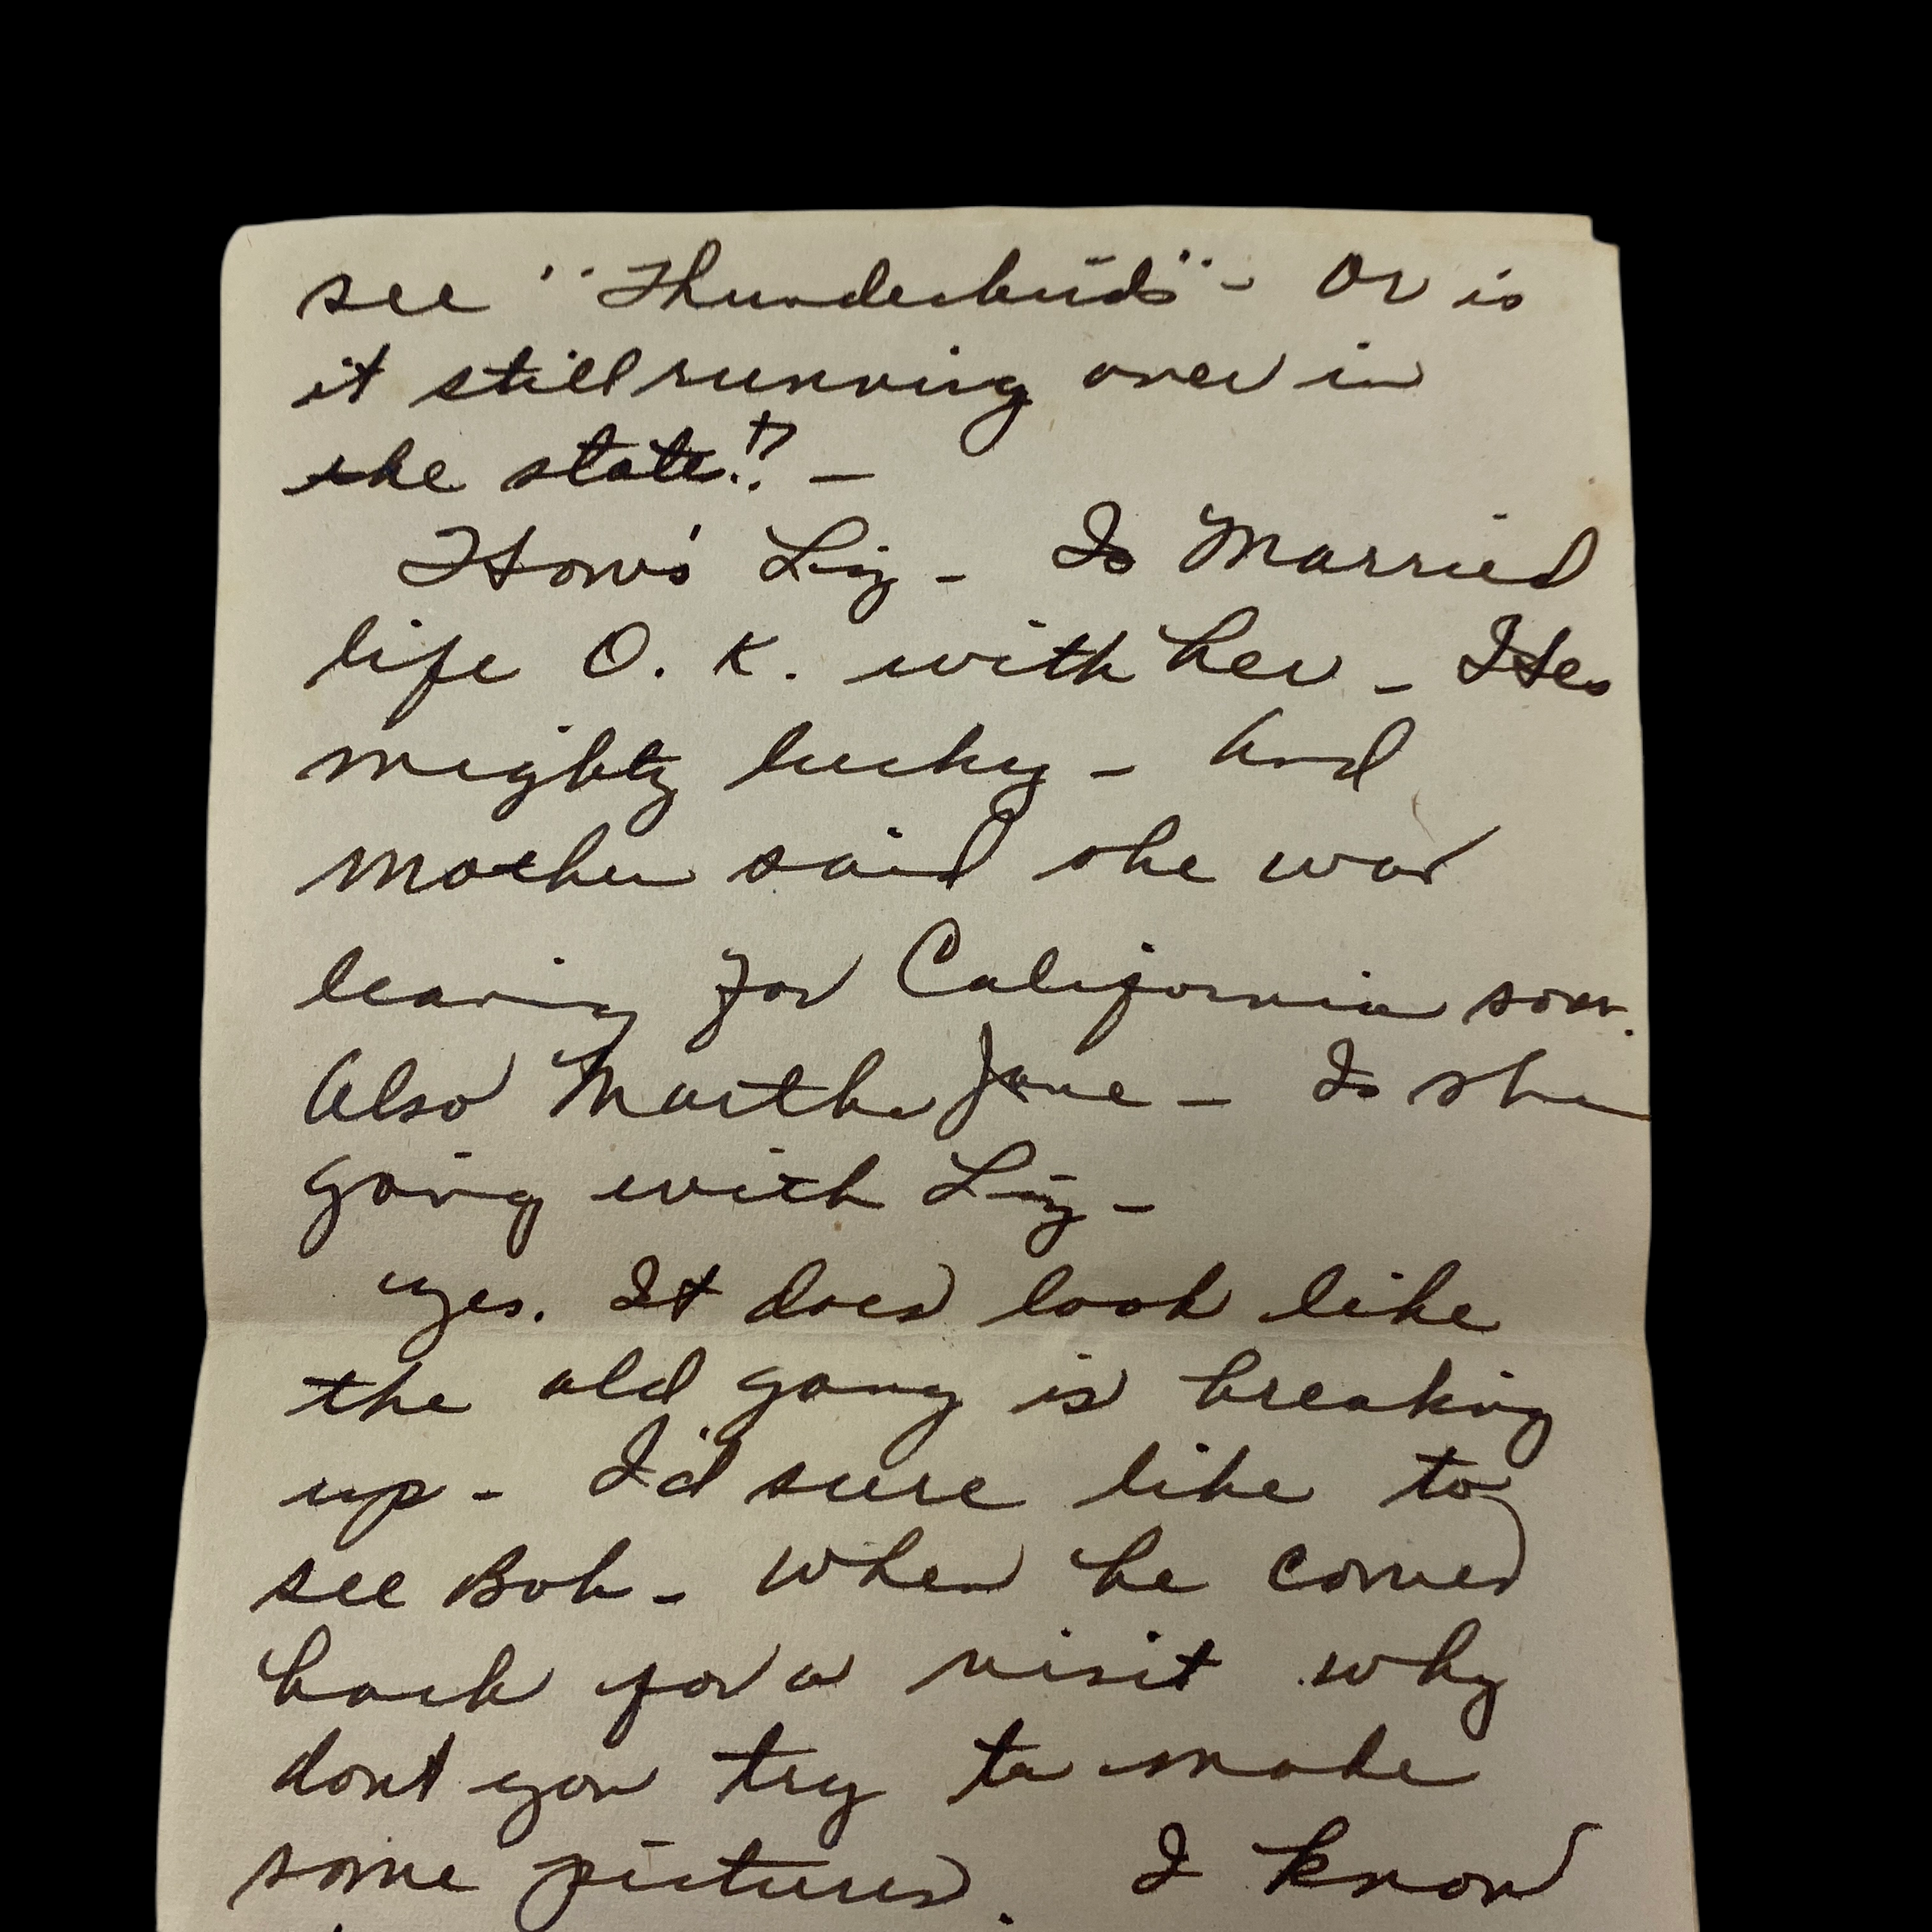 see "Thunderbirds" - Or is
it still running over in
the state!? -
How's Liz - Is Married
life O. K. with her - Hes
mighty lucky - And
mother said she was
leaving for California soon.
Also Martha Jane - Is she
going with Liz -
yes. It does look like
the old gang is breaking
up - I'd sure like to
see Bob - When he comes
back for a visit why
dont you try to make
some pictures. I know